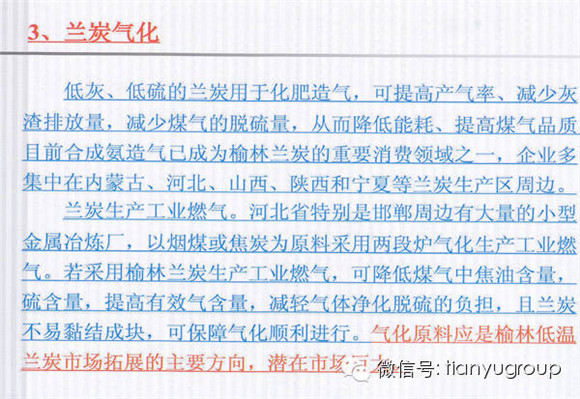 3、兰炭气化
低灰、低硫的兰炭用于化肥造气，可提高产气率、减少灰
渣排放量，减少煤气的脱硫量，从而降低能耗、提高煤气品质
目前合成氨造气已成为榆林兰炭的重要消费领域之一，企业多
集中在内蒙古、河北、山西、陕西和宁夏等兰炭生产区周边。
兰炭生产工业燃气。河北省特别是邯郸周边有大量的小型
金属冶炼厂，以烟煤或焦炭为原料采用两段炉气化生产工业燃
气。若采用榆林兰炭生产工业燃气，可降低煤气中焦油含量，
硫含量，提高有效气含量，减轻气体净化脱硫的负担，且兰炭
不易黏结成块，可保障气化顺利进行。气化原料应是榆林低温
兰炭市场拓展的主要方向，潜在市场
微信号: tianyugroup